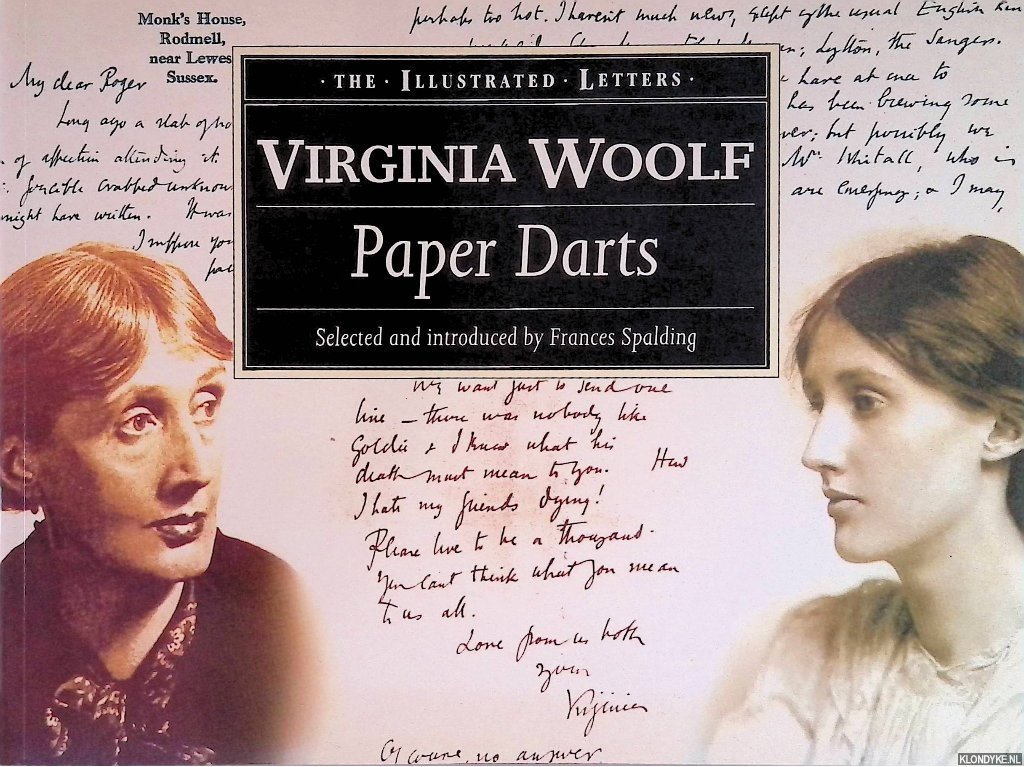 Monk's House,
Rodmell,
near Lewes
Sussex.
My dear Roger
Long ago a slab of
of affection attending it.
forcible crabbed unknown
might have written. It was
I suppose you
perhaps too hot. I havent much news, except of the usual English
Lytton, the Sangers.
have at once to
has been brewing some
but possibly we
Mr. Whitall, who is
are emerging; & I may,
· THE · ILLUSTRATED · LETTERS ·
VIRGINIA WOOLF
Paper Darts
Selected and introduced by Frances Spalding
We want just to send one
line — there was nobody like
Goldie & I know what his
death must mean to you. How
I hate my friends dying!
Please live to be a thousand.
You cant think what you mean
to us all.
Love from us both
yours
Virginia
Of course, no answer
KLONDYKE.NL